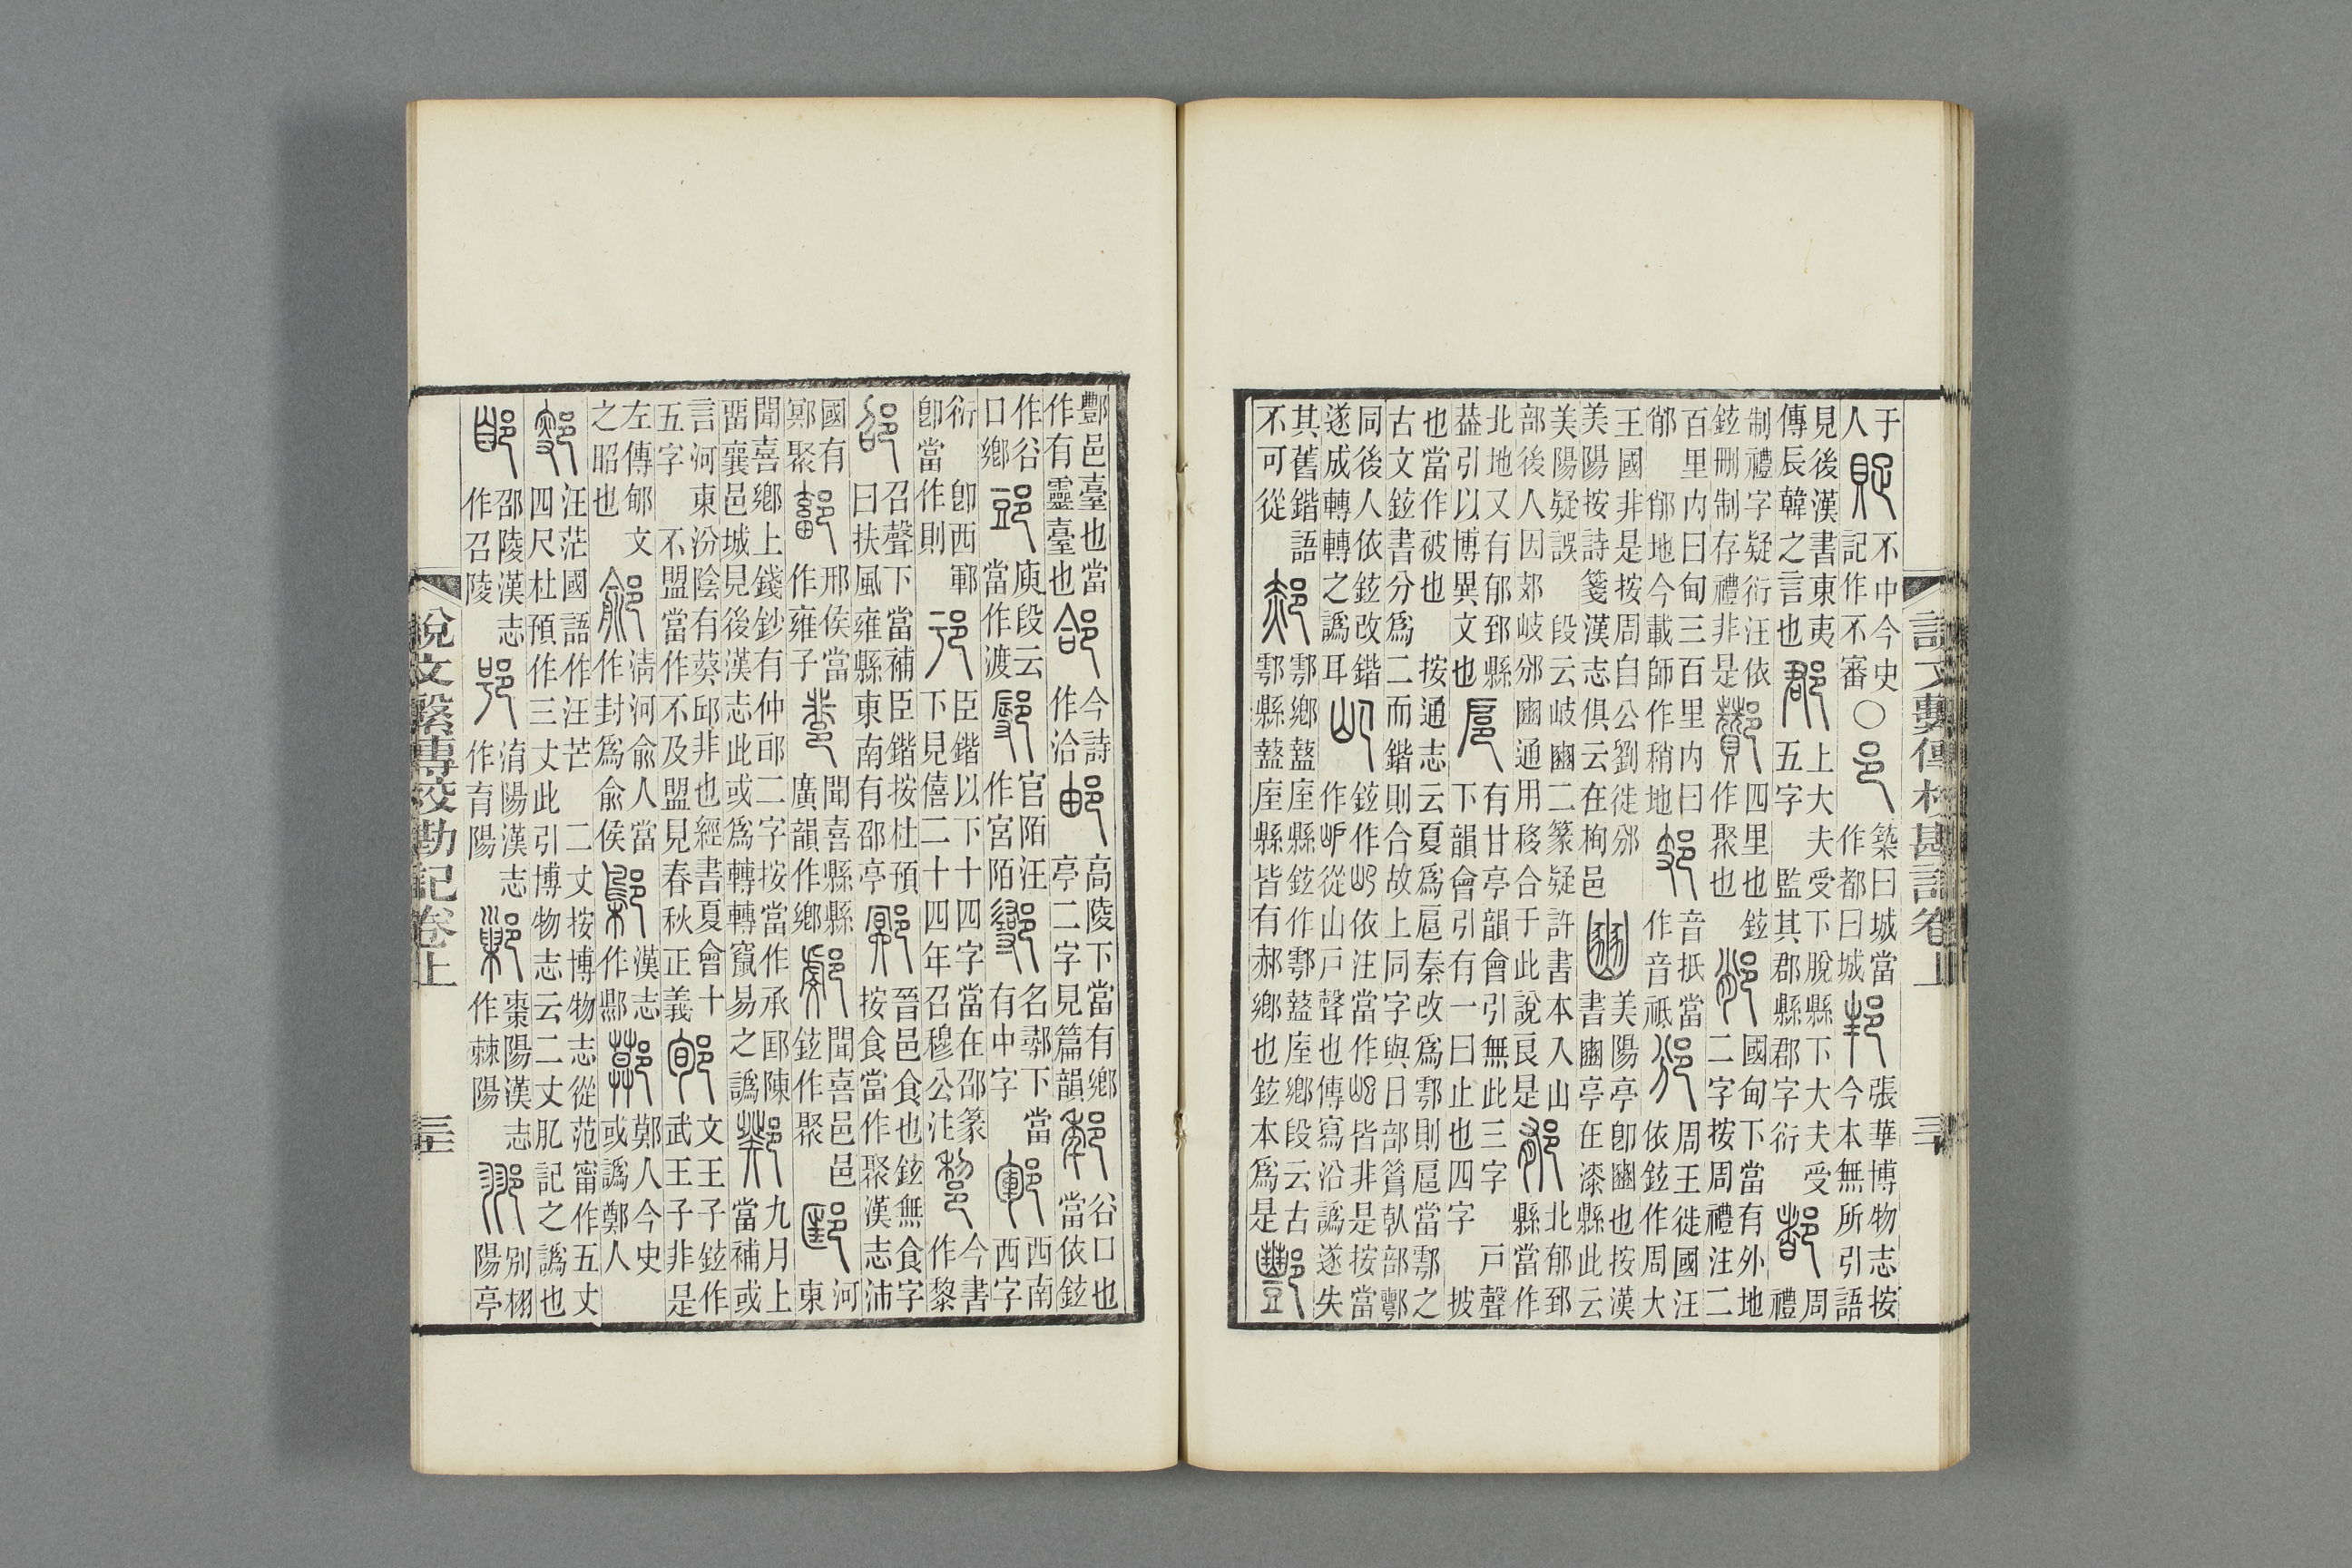 說文繫傳校勘記卷上 三十
于人 不中今史記作不審〇邑築曰城當作都曰城邦張華博物志按今本無所引語
見後漢書東夷傳辰韓之言也郡上大夫受下脫縣下大夫受五字 監其郡縣郡字衍都周禮
制禮字疑衍汪依鉉刪制存禮非是酇四里也鉉作聚也 國甸下當有外地二字按周禮注二
百里内曰甸三百里内曰 地今載師作稍地 音抵當作音祗邠周王徙國汪依鉉作周大
王國非是按周自公劉徙邠美陽按詩箋漢志俱云在栒邑豳美陽亭卽豳也按漢書豳亭在漆縣此云
美陽疑誤 段云岐豳二篆疑許書本入山部後人因郊岐邠豳通用移合于此說良是郁北郁郅縣當作
北地又有郁郅縣葢引以博異文也扈有甘亭韻會引無此三字 戶聲下韻會引有一曰止也四字 披
也當作被也 按通志云夏爲扈秦改爲鄠則扈當鄠之古文鉉書分爲二而鍇則合故上同字與日部
同後人依鉉改鍇遂成轉轉之譌耳 鉉作 依注當作 皆非是按當作 從山戶聲也傳寫沿譌遂失
其舊鍇語不可從郝鄠鄉盩厔縣鉉作鄠盩厔鄉段云古鄠縣盩厔縣皆有郝鄉也鉉本爲是酆
酆邑臺也當作有靈臺也郃今詩作洽邮高陵下當有鄉亭二字見篇韻 谷口也當依鉉
作谷口鄉 庾段云當作渡 官陌汪作宮陌 名鄩下當有中字鄆西南西字
衍 卽西鄆卽當作則祁臣鍇以下十四字當在邵篆下見僖二十四年召穆公注 今書作黎
邵召聲下當補臣鍇按杜預曰扶風雍縣東南有邵亭鄍晉邑食也鉉無食字按食當作聚漢志沛
國有鄍聚鄐邢侯當作雍子 聞喜縣縣廣韻作鄉 聞喜邑邑鉉作聚邼河東
聞喜鄉上錢鈔有仲邼二字按當作承邼陳畱襄邑城見後漢志此或爲轉轉竄易之譌 九月上當補或
言河東汾陰有葵邱非也經書夏會十五字 不盟當作不及盟見春秋正義郇文王子鉉作武王子非是
左傳郇文之昭也鄃淸河俞人當作封爲俞侯鄡漢志作鄡鄚鄭人今史或譌鄭人
汪茫國語作汪芒 二丈按博物志從范甯作五丈四尺杜預作三丈此引博物志云二丈肊記之譌也
邵陵漢志作召陵 淯陽漢志作育陽 棗陽漢志作棘陽 別栩陽亭
說文繫傳校勘記卷上 三十